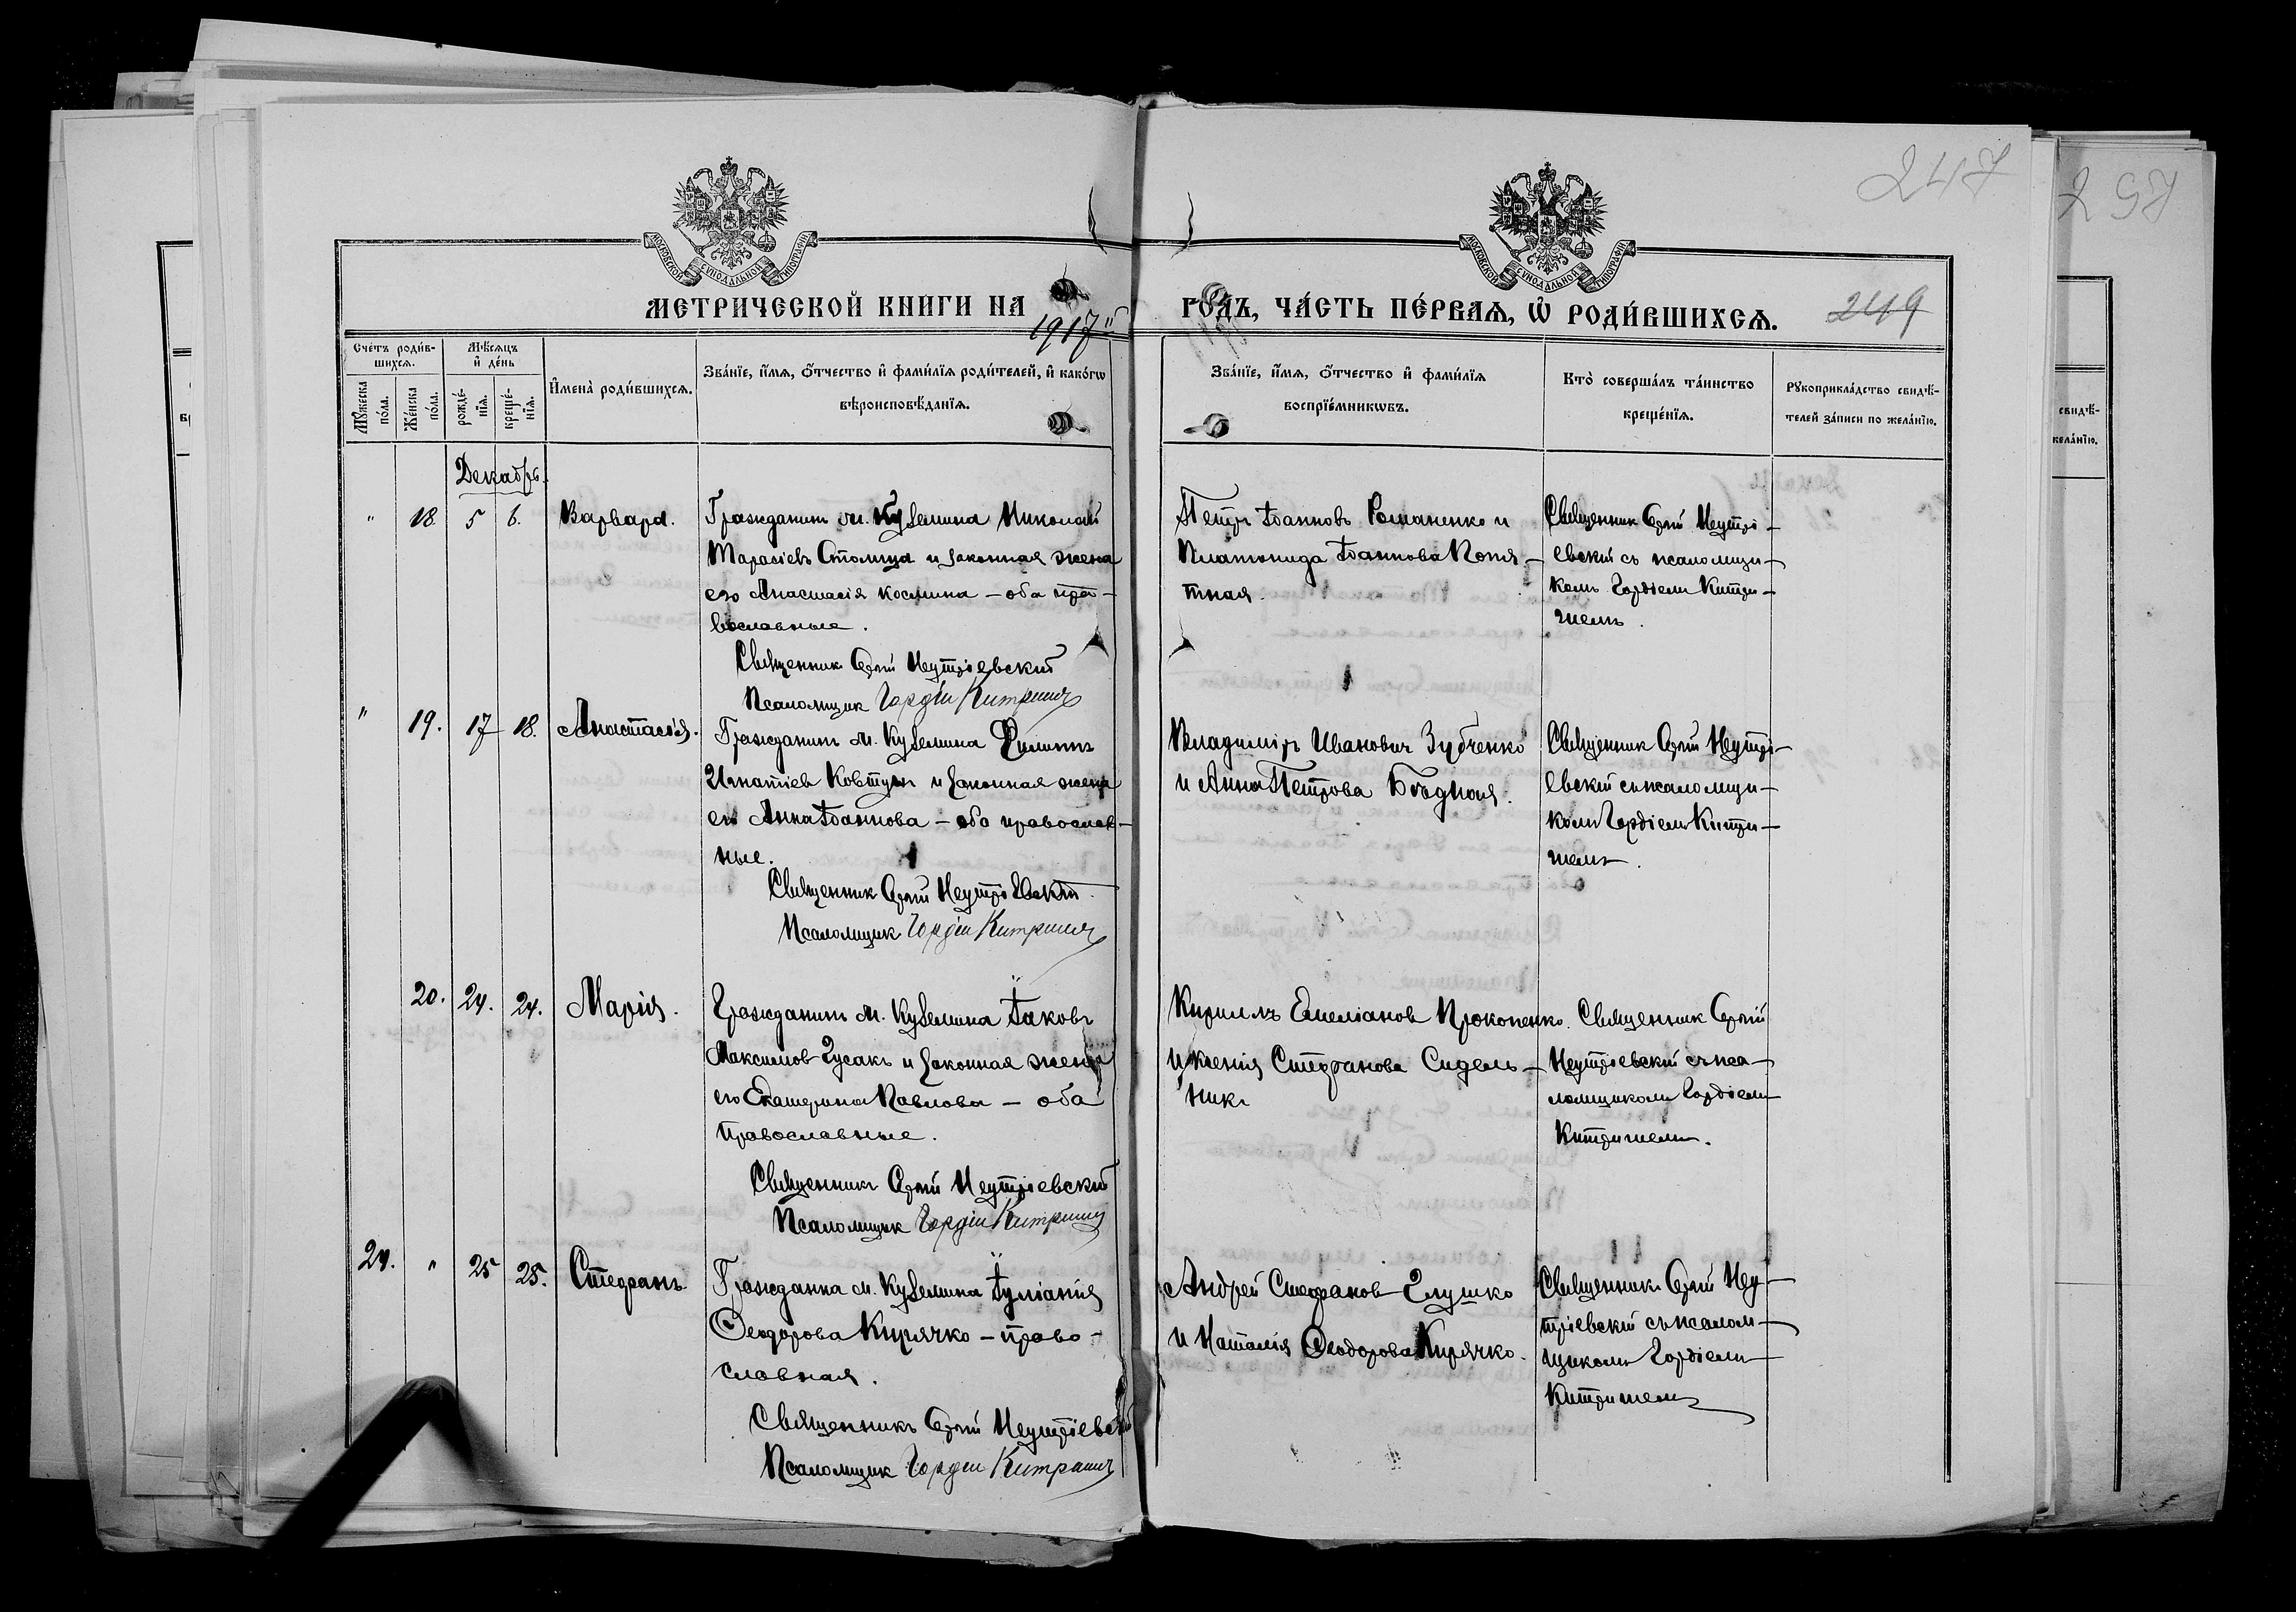 247
257
МОСКОВСКОЙ СУНОДАЛЬНОЙ ТИПОГРАФІИ
МОСКОВСКОЙ СУНОДАЛЬНОЙ ТИПОГРАФІИ
МЕТРИЧЕСКОЙ КНИГИ НА 1917й
ГО́ДЪ, ЧА́СТЬ ПЕ́РВАѦ, Ѡ҆ РОДИ́ВШИХСѦ.
249
Сче́тъ роди́в-
шихсѧ.
Мѣ́сѧцъ
и҆ де́нь
Мꙋ́жеска
по́ла.
Же́нска
по́ла.
рожде́-
нїѧ.
креще́-
нїѧ.
И҆мена̀ роди́вшихсѧ.
Зва́нїе, и҆́мѧ, ѻ҆́тчество и҆ фами́лїѧ роди́телей, и҆ како́гѡ
вѣроисповѣ́данїѧ.
Зва́нїе, и҆́мѧ, ѻ҆́тчество и҆ фами́лїѧ
воспрїе́мникѡвъ.
Кто̀ соверша́лъ та́инство
креще́нїѧ.
Рꙋкоприкла́дство свидѣ́-
телей за́писи по жела́нїю.
свидѣ́-
жела́нїю.
Декабрь.
" 18. 5 6. Варвара.
Гражданинъ м. Куземина Николай
Тарасіевъ Столица и законная жена
его Анастасія Космина — оба пра-
вославные.
Священникъ Сергій Неутріевский
Псаломщик Гордій Китриш
Петръ Іоанновъ Романенко и
Платонида Іоаннова Копя-
тная.
Священник Сергій Неутрі-
евский съ псаломщи-
комъ Гордіем Китри-
шемъ.
" 19. 17 18. Анастасія.
Гражданинъ м. Куземина Филиппъ
Игнатіев Ковтунъ и законная жена
его Анна Іоаннова — оба православ-
ные.
Священник Сергій Неутріевский
Псаломщик Гордій Китриш
Владиміръ Иванович Зубченко
и Анна Петрова Бѣдная.
Священник Сергій Неутрі-
евский съ псаломщи-
комъ Гордіемъ Китри-
шемъ.
20. 24. 24. Марія.
Гражданинъ м. Куземина Іаковъ
Максимов Гусакъ и законная жена
его Екатерина Павлова — оба
православные.
Священникъ Сергій Неутріевский
Псаломщик Гордій Китриш
Кириллъ Емеліанов Прокопенко
и Ксенія Стефанова Сидель-
ник
Священник Сергій
Неутріевский съ пса-
ломщиком Гордіемъ
Китришемъ.
24. " 25 25. Стефанъ
Гражданка м. Куземина Іуліанія
Феодорова Кирячко — право-
славная.
Священникъ Сергій Неутріевский
Псаломщик Гордій Китриш
Андрей Стефанов Глушко
и Наталія Феодорова Кирячко.
Священникъ Сергій Неу-
тріевский съ псалом-
щиком Гордіемъ
Китришемъ